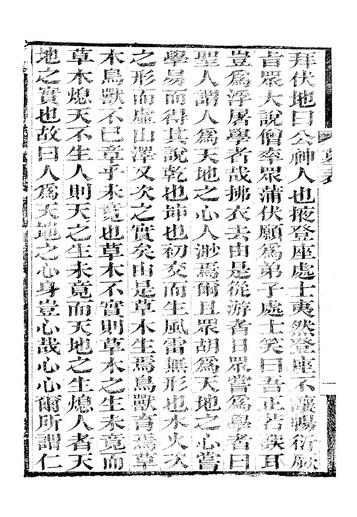 拜伏地曰公神人也掖登座處士夷然登座不讓暢衍厥
旨眾大說僧率眾蒲伏願為弟子處士笑曰吾正若誤耳
豈為浮屠學者哉拂衣去由是從游者日眾嘗為學者曰
聖人謂人為天地之心人渺焉爾且眾胡為天地之心嘗
學易而得其說乾也坤也初交而生風雷無形也木火次
之形而虛山澤又次之實矣由是草木生焉鳥獸育焉草
木鳥獸不已章乎未竟也草木不實則草木之生未竟而
草木熄天不生人則天之生未竟而天地之生熄人者天
地之實也故曰人為天地之心身豈心哉心心爾所謂仁